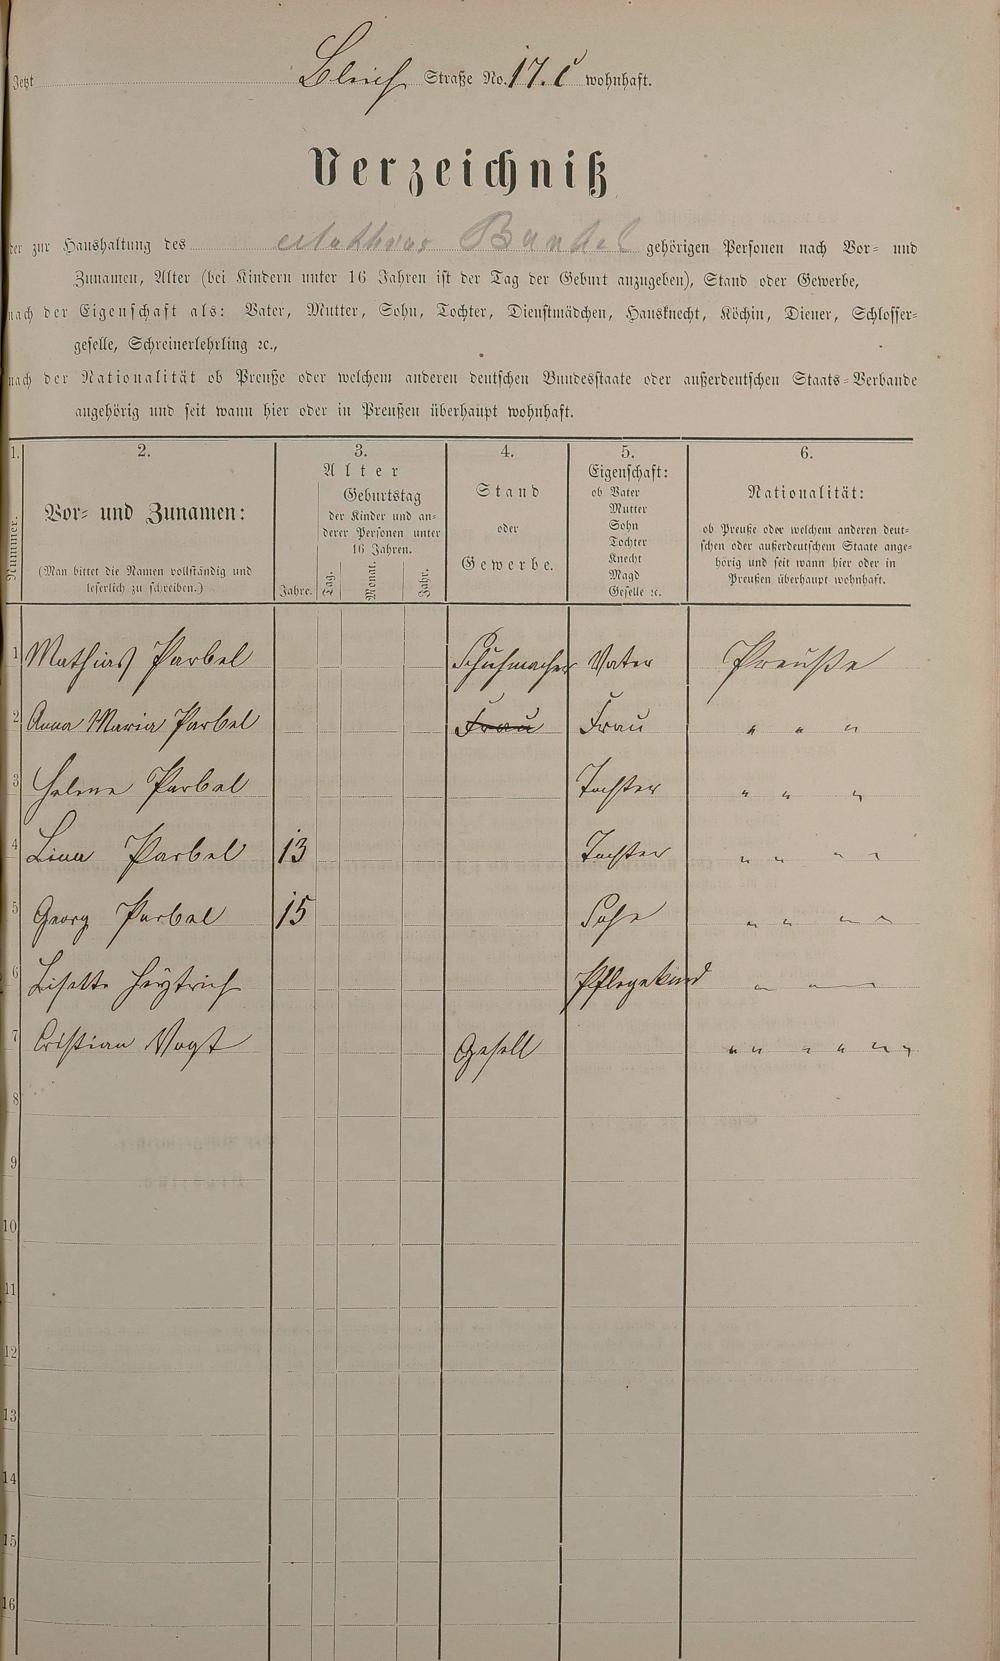 Jetzt Bleich Straße No. 17. c wohnhaft.
Verzeichniß
der zur Haushaltung des Mathias Bandel gehörigen Personen nach Vor- und
Zunamen, Alter (bei Kindern unter 16 Jahren ist der Tag der Geburt anzugeben), Stand oder Gewerbe,
nach der Eigenschaft als: Vater, Mutter, Sohn, Tochter, Dienstmädchen, Hausknecht, Köchin, Diener, Schlosser-
geselle, Schreinerlehrling ꝛc.,
nach der Nationalität ob Preuße oder welchem anderen deutschen Bundesstaate oder außerdeutschen Staats-Verbande
angehörig und seit wann hier oder in Preußen überhaupt wohnhaft.
1.
Nummer.
2.
Vor- und Zunamen:
(Man bittet die Namen vollständig und
leserlich zu schreiben.)
3.
Alter
Jahre.
Geburtstag
der Kinder und an-
derer Personen unter
16 Jahren.
Tag.
Monat.
Jahr.
4.
Stand
oder
Gewerbe.
5.
Eigenschaft:
ob Vater
Mutter
Sohn
Tochter
Knecht
Magd
Geselle ꝛc.
6.
Nationalität:
ob Preuße oder welchem anderen deut-
schen oder außerdeutschem Staate ange-
hörig und seit wann hier oder in
Preußen überhaupt wohnhaft.
1 Mathias Parbel Schuhmacher Vater Preuße
2 Anna Maria Parbel Frau Frau " " "
3 Helene Parbel Tochter " " "
4 Lina Parbel 13 Tochter " " " "
5 Georg Parbel 15 Sohn " " " "
6 Lisette Heytrich Pflegekind " " "
7 Cristian Vogt Gesell " " " " " "
8
9
10
11
12
13
14
15
16